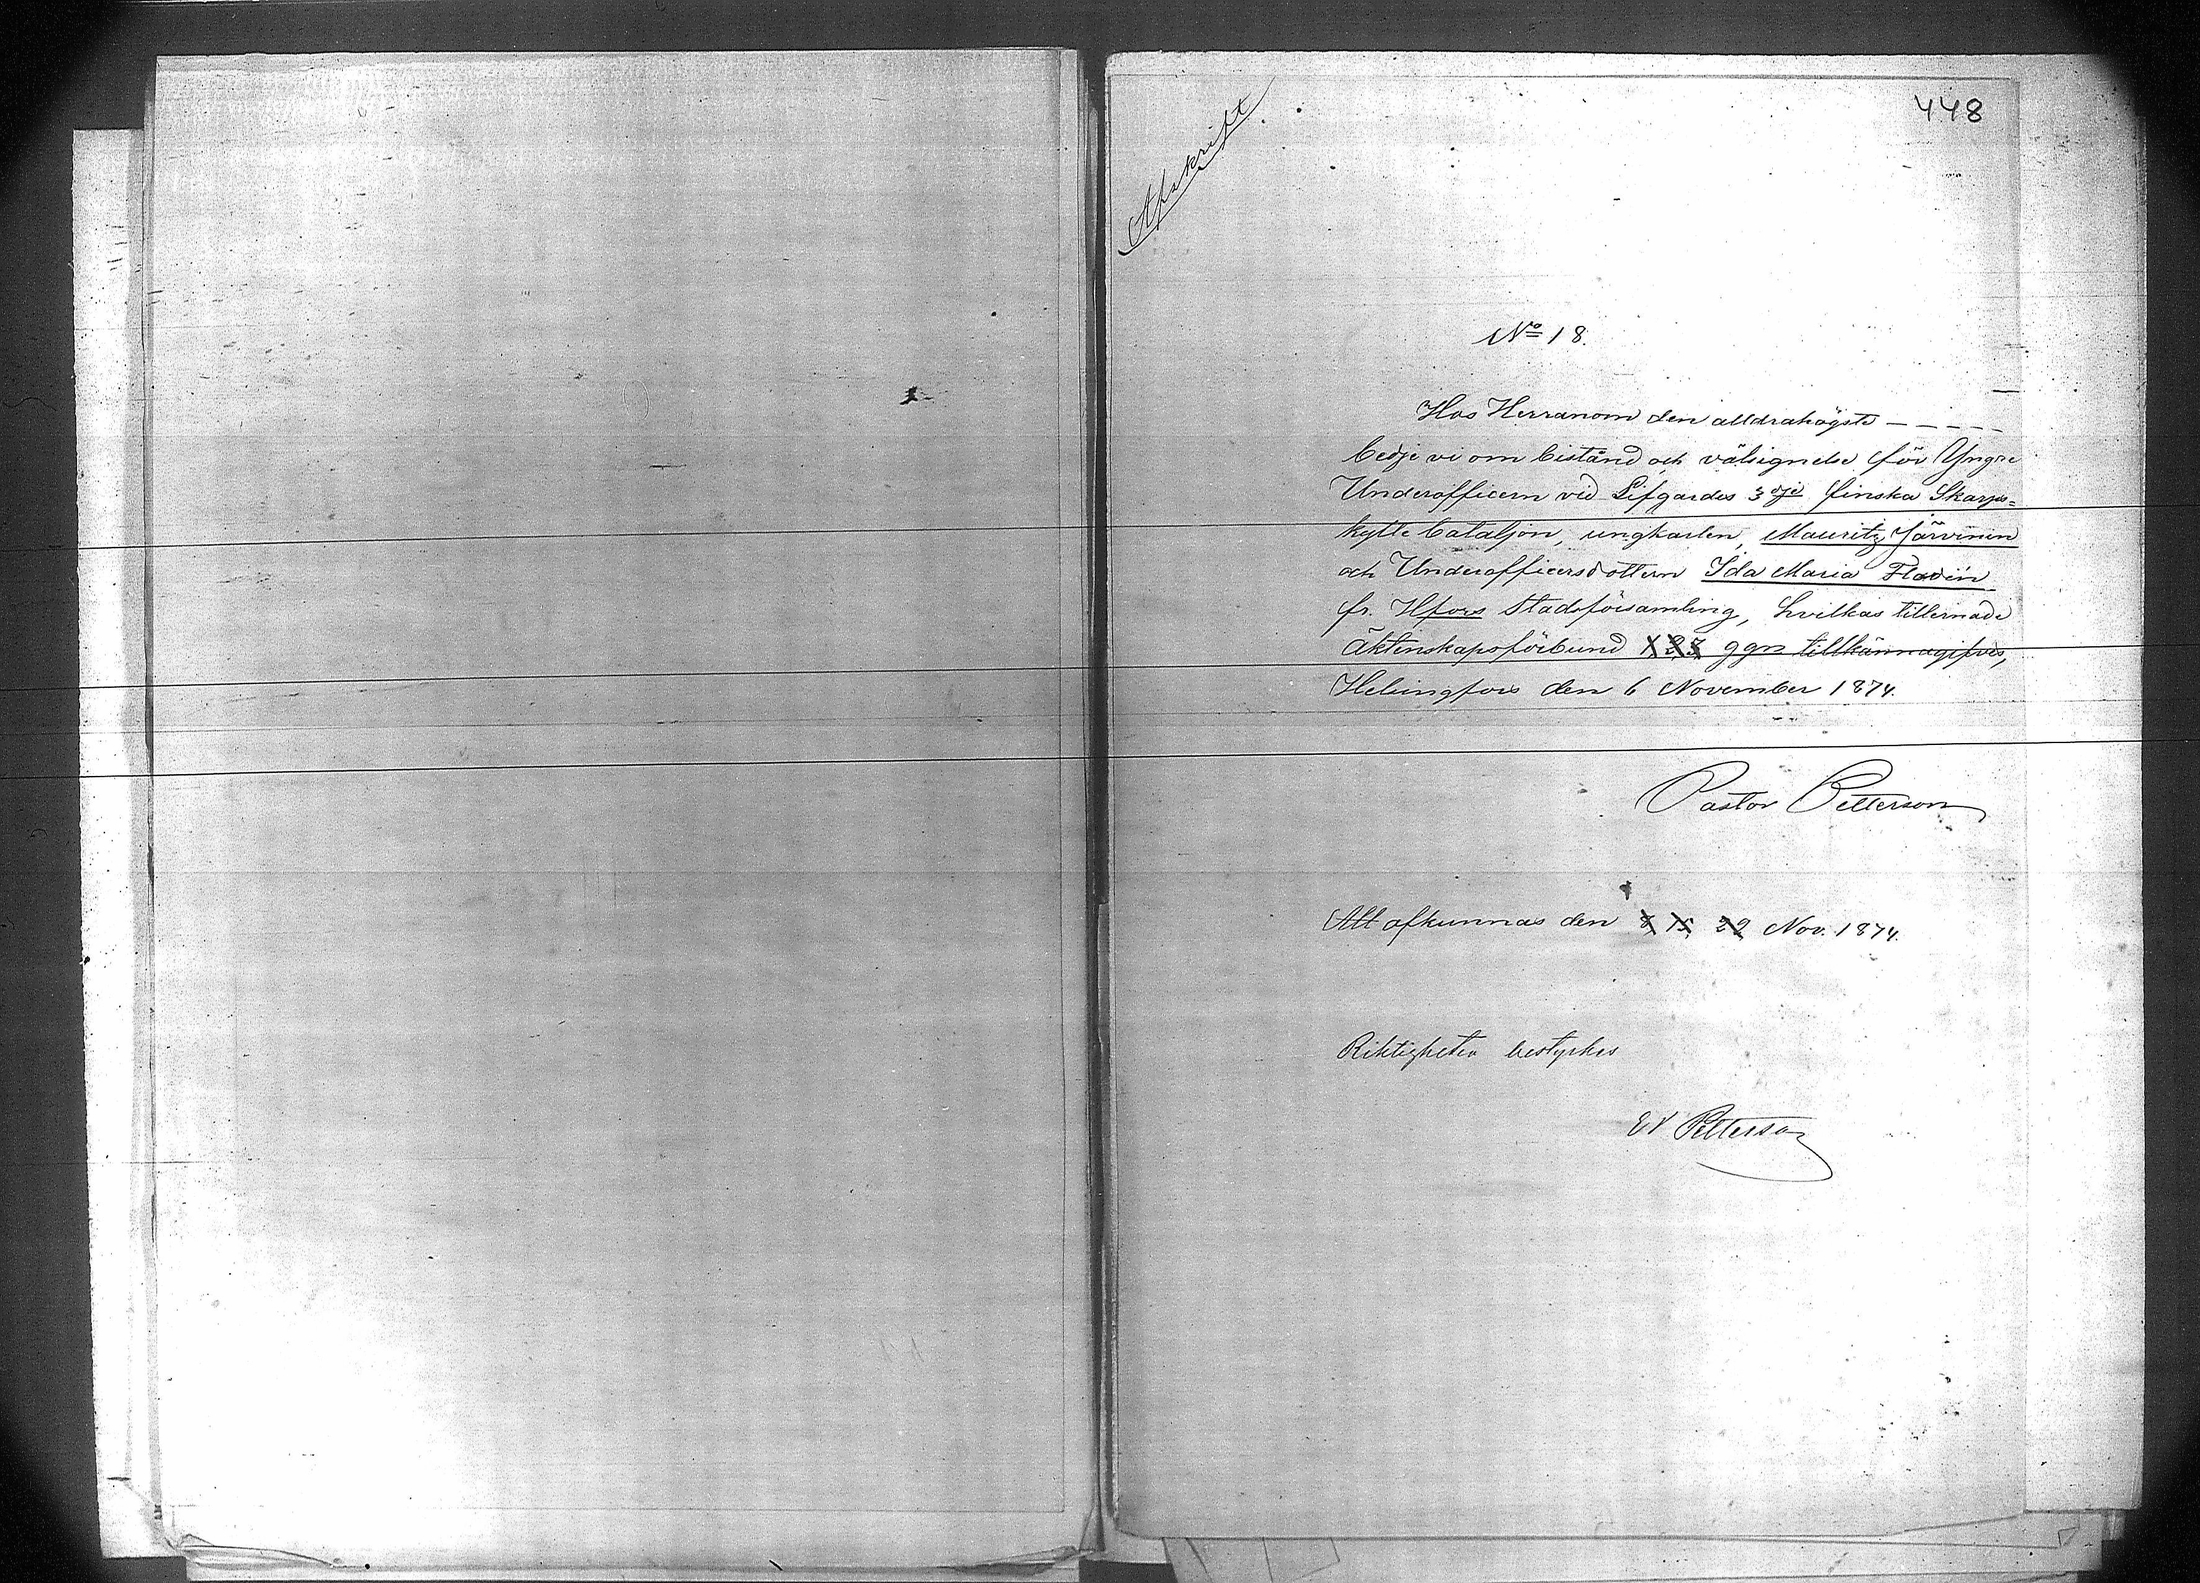 448
Afskrift.
No 18.
Hos Herranom den alldrahögste - - - - -
bedje vi om bistånd och välsignelse för Yngre
Underofficern vid Lifgardes 3dje finska Skarps=
kytte bataljon, ungkarlen, Mauritz Järvinen
och Underofficersdottern Ida Maria Flodin
fr. Hfors Stadsförsamling, hvilkas tillernade
Äktenskapsförbund 1, 2, 3 ggn tillkännagifves,
Helsingfors den 6 November 1874.
Pastor Petterson
Att afkunnas den 8 15 22 Nov. 1874.
Riktigheten bestyrkes
Petterson